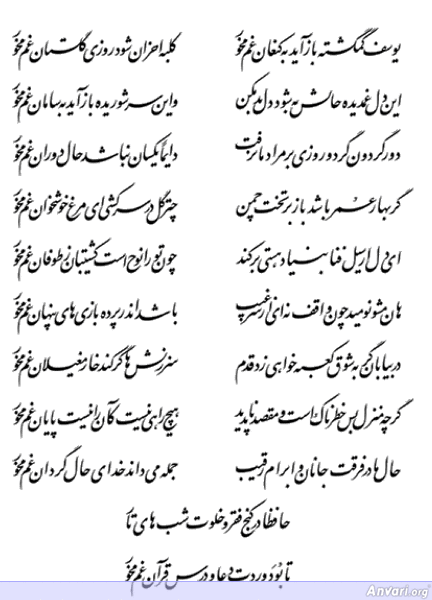 یوسف گمگشته بازآید به کنعان غم مخور کلبهٔ احزان شود روزی گلستان غم مخور
این دل غمدیده حالش به شود دل بد مکن وین سر شوریده بازآید به سامان غم مخور
دور گردون گر دو روزی بر مراد ما نرفت دایماً یکسان نباشد حال دوران غم مخور
گر بهار عمر باشد باز بر تخت چمن چتر گل در سر کشی ای مرغ خوشخوان غم مخور
ای دل ار سیل فنا بنیاد هستی برکند چون تو را نوح است کشتیبان ز طوفان غم مخور
هان مشو نومید چون واقف نه‌ای از سر غیب باشد اندر پرده بازی‌های پنهان غم مخور
در بیابان گر به شوق کعبه خواهی زد قدم سرزنش‌ها گر کند خار مغیلان غم مخور
گرچه منزل بس خطرناک است و مقصد ناپدید هیچ راهی نیست کان را نیست پایان غم مخور
حال ما در فرقت جانان و ابرام رقیب جمله می‌داند خدای حال گردان غم مخور
حافظا در کنج فقر و خلوت شب‌های تار
تا بود وردت دعا و درس قرآن غم مخور
Anvari.org